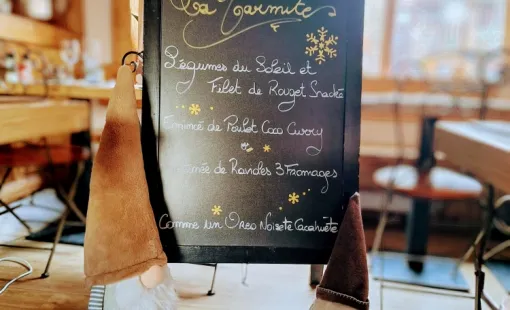 La Marmite
Légumes du Soleil et
Filet de Rouget Snacké
Emincé de Poulet Coco Curry
de Raviоles 3 Fromages
Comme un Oreo Noisette Cacahuète